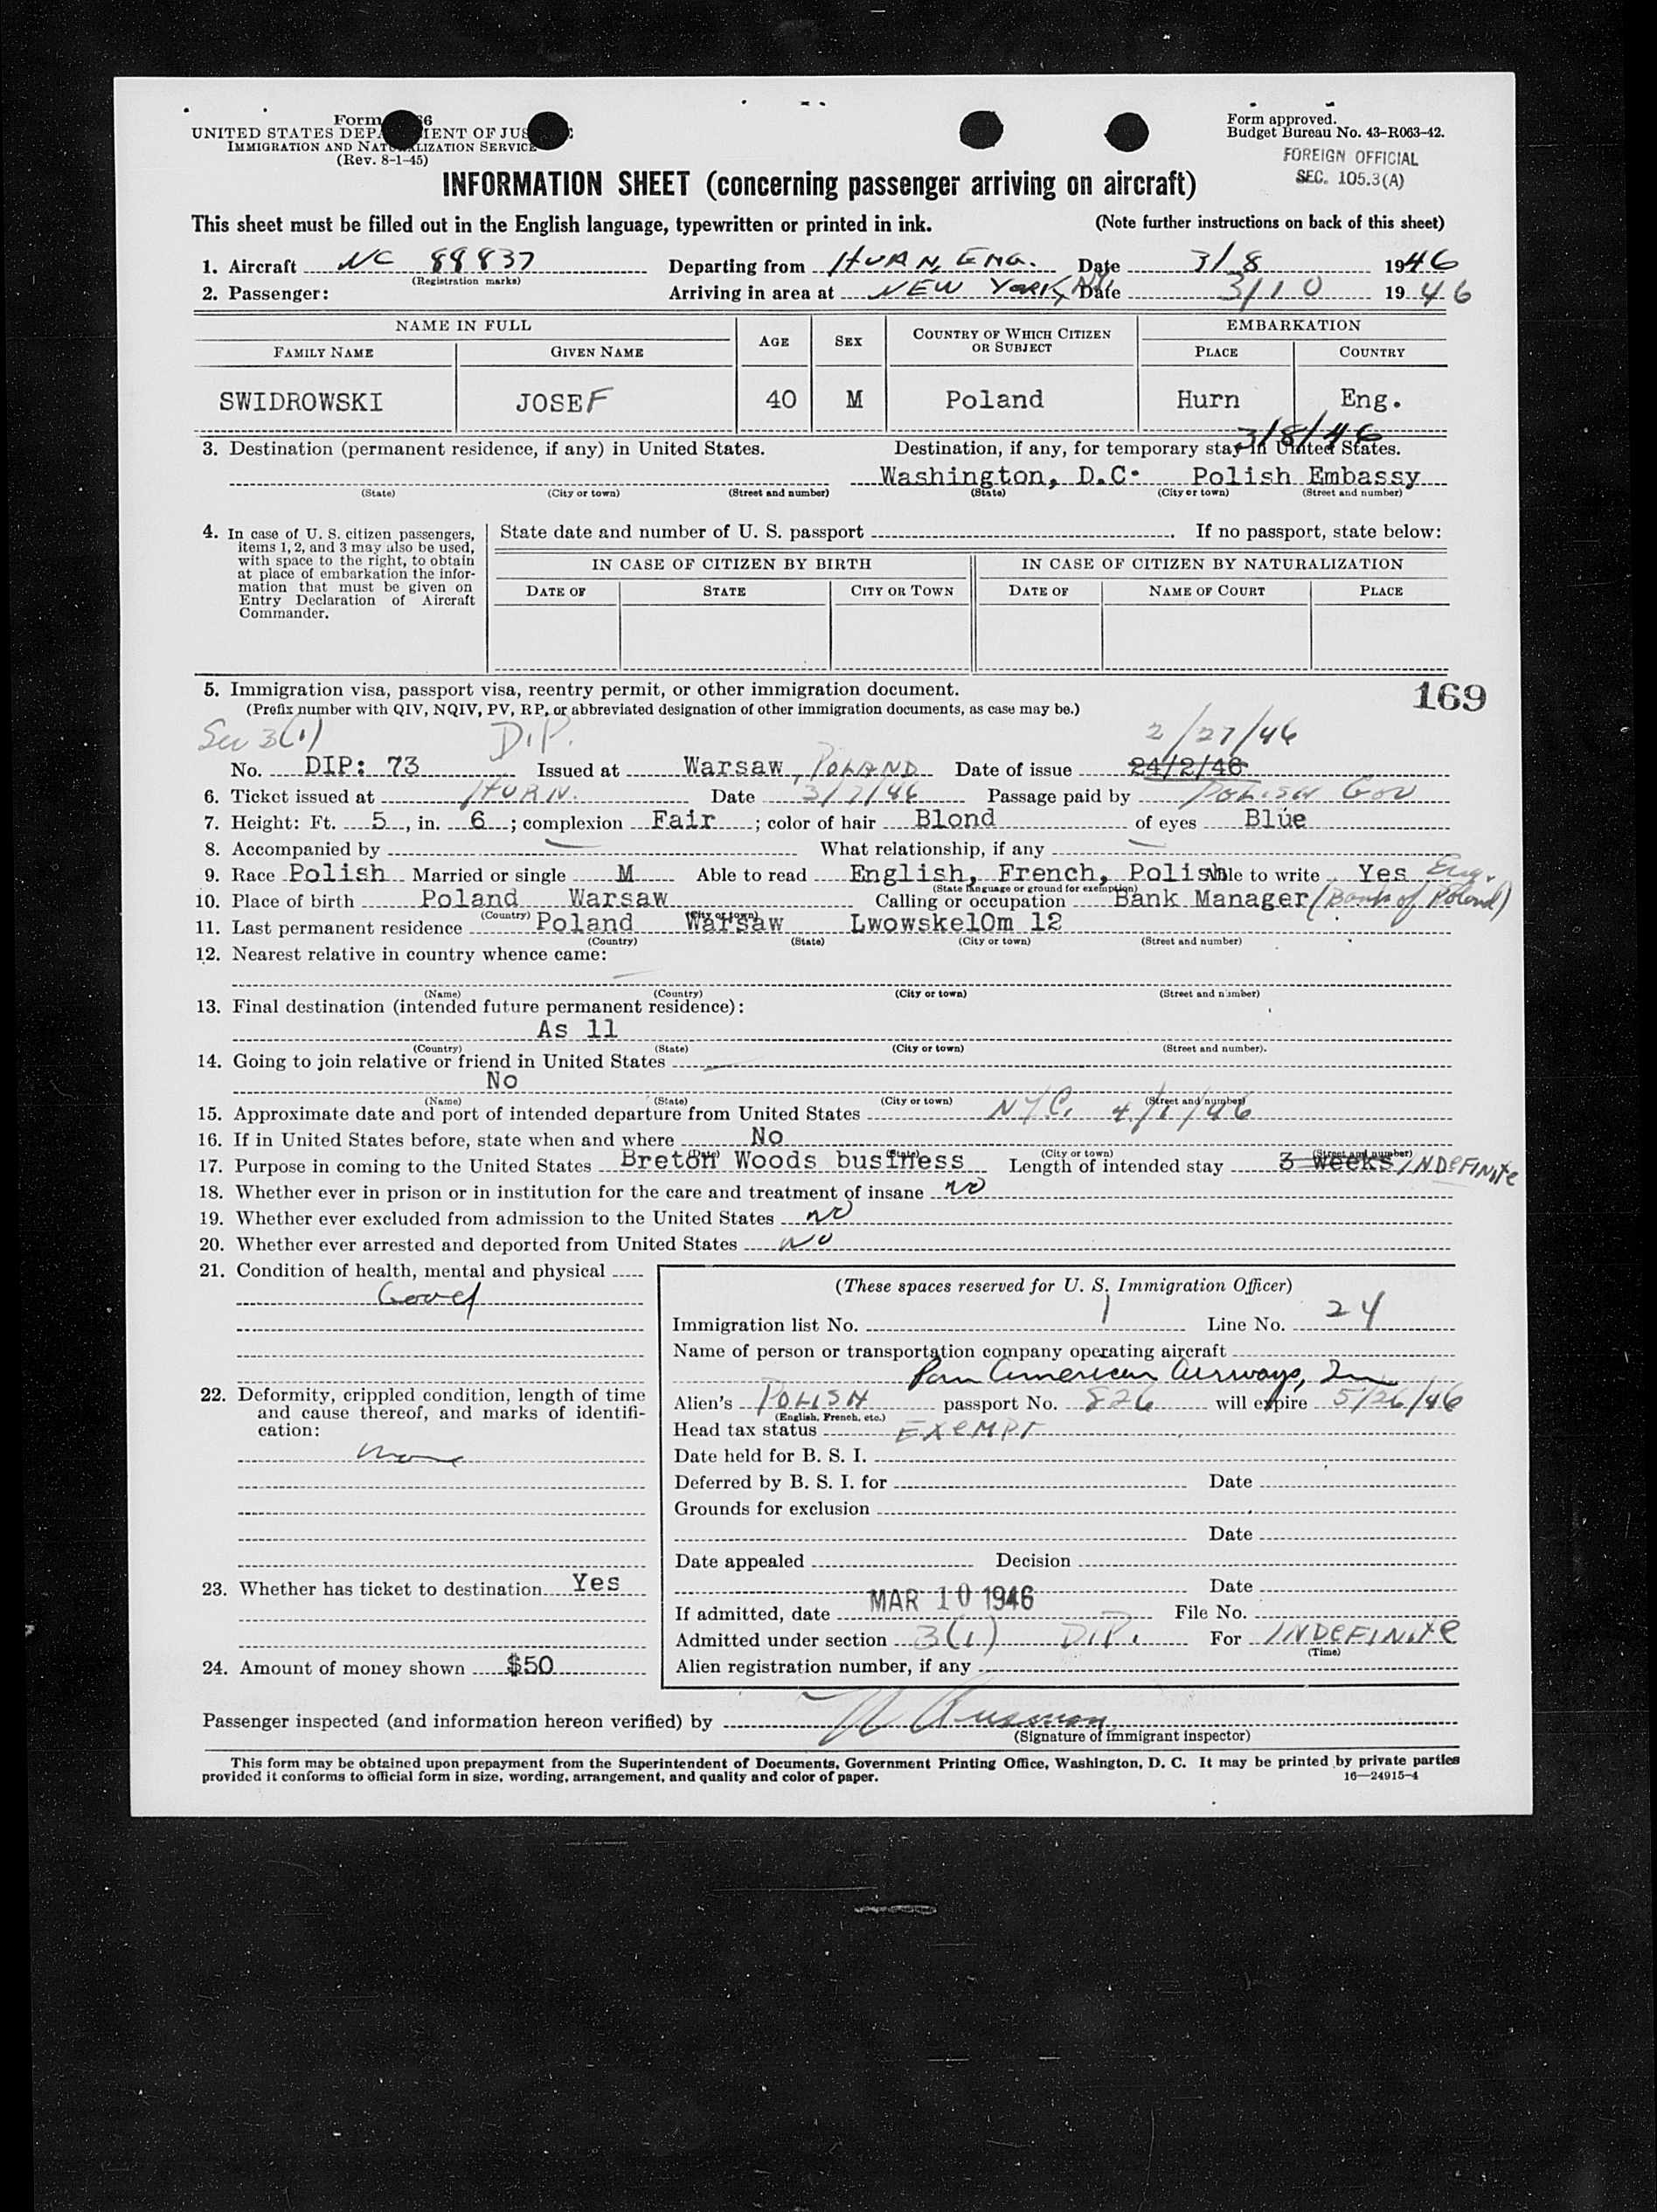 Form 66
UNITED STATES DEPARTMENT OF JUSTICE
IMMIGRATION AND NATURALIZATION SERVICE
(Rev. 8-1-45)
Form approved.
Budget Bureau No. 43-R063-42.
FOREIGN OFFICIAL
SEC. 105.3(A)
INFORMATION SHEET (concerning passenger arriving on aircraft)
This sheet must be filled out in the English language, typewritten or printed in ink. (Note further instructions on back of this sheet)
1. Aircraft NC 88837 Departing from HURN, ENG. Date 3/8 1946
(Registration marks)
2. Passenger: Arriving in area at NEW YORK, NY. Date 3/10 1946
NAME IN FULL AGE SEX COUNTRY OF WHICH CITIZEN OR SUBJECT EMBARKATION
FAMILY NAME GIVEN NAME PLACE COUNTRY
SWIDROWSKI JOSEF 40 M Poland Hurn Eng.
3/8/46
3. Destination (permanent residence, if any) in United States. Destination, if any, for temporary stay in United States.
Washington, D.C. Polish Embassy
(State) (City or town) (Street and number) (State) (City or town) (Street and number)
4. In case of U. S. citizen passengers, items 1, 2, and 3 may also be used, with space to the right, to obtain at place of embarkation the information that must be given on Entry Declaration of Aircraft Commander.
State date and number of U. S. passport . If no passport, state below:
IN CASE OF CITIZEN BY BIRTH IN CASE OF CITIZEN BY NATURALIZATION
DATE OF STATE CITY OR TOWN DATE OF NAME OF COURT PLACE
5. Immigration visa, passport visa, reentry permit, or other immigration document. 169
(Prefix number with QIV, NQIV, PV, RP, or abbreviated designation of other immigration documents, as case may be.)
Sec 3(1) DIP. 2/27/46
No. DIP: 73 Issued at Warsaw, POLAND Date of issue 24/2/46
6. Ticket issued at HURN. Date 3/7/46 Passage paid by POLISH GOV
7. Height: Ft. 5, in. 6; complexion Fair; color of hair Blond of eyes Blue
8. Accompanied by — What relationship, if any —
9. Race Polish Married or single M Able to read English, French, Polish Able to write Yes Eng.
(State language or ground for exemption)
10. Place of birth Poland Warsaw Calling or occupation Bank Manager (Bank of Poland)
(Country) (City or town)
11. Last permanent residence Poland Warsaw LwowskelOm 12
(Country) (State) (City or town) (Street and number)
12. Nearest relative in country whence came:
—
(Name) (Country) (City or town) (Street and number)
13. Final destination (intended future permanent residence):
As 11
(Country) (State) (City or town) (Street and number).
14. Going to join relative or friend in United States —
No
(Name) (State) (City or town) (Street and number)
15. Approximate date and port of intended departure from United States NYC. 4/1/46
16. If in United States before, state when and where No
(Date) (State) (City or town) (Street and number)
17. Purpose in coming to the United States Breton Woods business Length of intended stay 3 weeks INDEFINITE
18. Whether ever in prison or in institution for the care and treatment of insane no
19. Whether ever excluded from admission to the United States no
20. Whether ever arrested and deported from United States no
21. Condition of health, mental and physical
Good
22. Deformity, crippled condition, length of time and cause thereof, and marks of identification:
none
23. Whether has ticket to destination Yes
24. Amount of money shown $50
(These spaces reserved for U. S. Immigration Officer)
Immigration list No. 1 Line No. 24
Name of person or transportation company operating aircraft
Pan American Airways, In
Alien's POLISH passport No. 826 will expire 5/26/46
(English, French, etc.)
Head tax status EXEMPT
Date held for B. S. I.
Deferred by B. S. I. for Date
Grounds for exclusion
Date
Date appealed Decision
Date
If admitted, date MAR 10 1946 File No.
Admitted under section 3(1) DIP. For INDEFINITE
(Time)
Alien registration number, if any
Passenger inspected (and information hereon verified) by
(Signature of immigrant inspector)
This form may be obtained upon prepayment from the Superintendent of Documents, Government Printing Office, Washington, D. C. It may be printed by private parties
provided it conforms to official form in size, wording, arrangement, and quality and color of paper. 16—24915-4